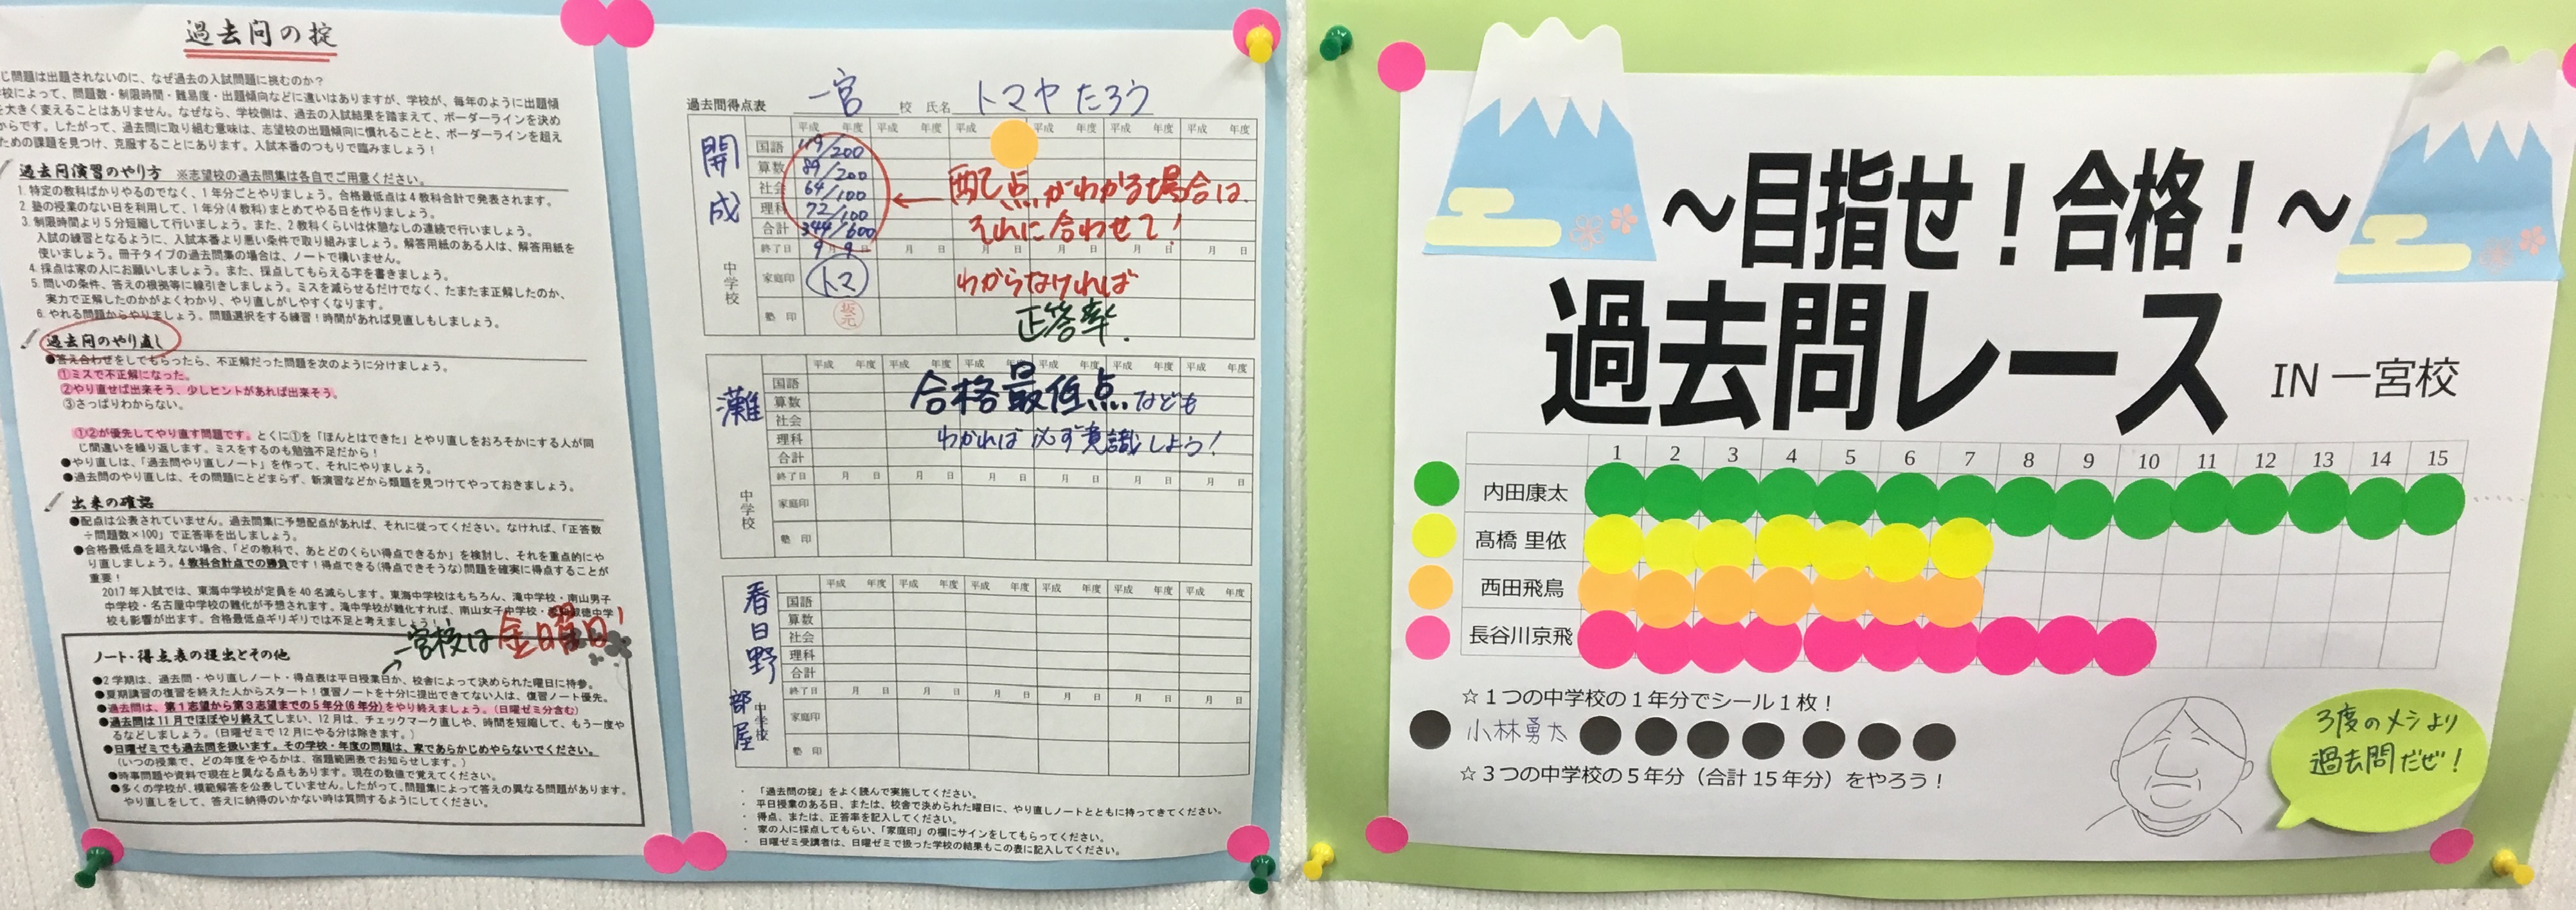 過去問の掟
じ問題は出題されないのに、なぜ過去の入試問題に挑むのか？
校によって、問題数・制限時間・難易度・出題傾向などに違いはありますが、学校が、毎年のように出題傾
を大きく変えることはありません。なぜなら、学校側は、過去の入試結果を踏まえて、ボーダーラインを決め
からです。したがって、過去問に取り組む意味は、志望校の出題傾向に慣れることと、ボーダーラインを超え
ための課題を見つけ、克服することにあります。入試本番のつもりで臨みましょう！
過去問演習のやり方 ※志望校の過去問集は各自でご用意ください。
1. 特定の教科ばかりやるのでなく、1年分ごとやりましょう。合格最低点は4教科合計で発表されます。
2. 塾の授業のない日を利用して、1年分(4教科)まとめてやる日を作りましょう。
3. 制限時間より5分短縮して行いましょう。また、2教科くらいは休憩なしの連続で行いましょう。
入試の練習となるように、入試本番より悪い条件で取り組みましょう。解答用紙のある人は、解答用紙を
使いましょう。冊子タイプの過去問集の場合は、ノートで構いません。
4. 採点は家の人にお願いしましょう。また、採点してもらえる字を書きましょう。
5. 問いの条件、答えの根拠等に線引きしましょう。ミスを減らせるだけでなく、たまたま正解したのか、
実力で正解したのかがよくわかり、やり直しがしやすくなります。
6. やれる問題からやりましょう。問題選択をする練習！時間があれば見直しもしましょう。
過去問のやり直し
●答え合わせをしてもらったら、不正解だった問題を次のように分けましょう。
①ミスで不正解になった。
②やり直せば出来そう、少しヒントがあれば出来そう。
③さっぱりわからない。
①②が優先してやり直す問題です。とくに①を「ほんとはできた」とやり直しをおろそかにする人が同
じ間違いを繰り返します。ミスをするのも勉強不足だから！
●やり直しは、「過去問やり直しノート」を作って、それにやりましょう。
●過去問のやり直しは、その問題にとどまらず、新演習などから類題を見つけてやっておきましょう。
出来の確認
●配点は公表されていません。過去問集に予想配点があれば、それに従ってください。なければ、「正答数
÷問題数×100」で正答率を出しましょう。
●合格最低点を超えない場合、「どの教科で、あとどのくらい得点できるか」を検討し、それを重点的にや
り直しましょう。4教科合計点での勝負です！得点できる(得点できそうな)問題を確実に得点することが
重要！
2017年入試では、東海中学校が定員を40名減らします。東海中学校はもちろん、滝中学校・南山男子
中学校・名古屋中学校の難化が予想されます。滝中学校が難化すれば、南山女子中学校・愛知淑徳中学
校も影響が出ます。合格最低点ギリギリでは不足と考えましょう！
一宮校は金曜日！
ノート・得点表の提出とその他
●2学期は、過去問・やり直しノート・得点表は平日授業日か、校舎によって決められた曜日に持参。
●夏期講習の復習を終えた人からスタート！復習ノートを十分に提出できてない人は、復習ノート優先。
●過去問は、第1志望から第3志望までの5年分(6年分)をやり終えましょう。(日曜ゼミ分含む)
●過去問は11月でほぼやり終えてしまい、12月は、チェックマーク直しや、時間を短縮して、もう一度や
るなどしましょう。(日曜ゼミで12月にやる分は除きます。)
●日曜ゼミでも過去問を扱います。その学校・年度の問題は、家であらかじめやらないでください。
(いつの授業で、どの年度をやるかは、宿題範囲表でお知らせします。)
●時事問題や資料で現在と異なる点もあります。現在の数値で覚えてください。
●多くの学校が、模範解答を公表していません。したがって、問題集によって答えの異なる問題があります。
やり直しをして、答えに納得のいかない時は質問するようにしてください。
過去問得点表 一宮 校 氏名 トマヤ たろう
平成 年度 平成 年度 平成 平成 年度 平成 年度 平成 年度
開成 中学校
国語 119/200
算数 89/200
社会 64/100
理科 72/100
合計 344/600
終了日 9月 9日 月 日 月 日 月 日 月 日 月 日
家庭印 トマ
塾 印 坂元
配点がわかる場合は
それに合わせて！
わからなければ
正答率.
平成 年度 平成 年度 平成 年度 平成 年度 平成 年度 平成 年度
灘 中学校
国語
算数
社会
理科
合計
終了日 月 日 月 日 月 日 月 日 月 日 月 日
家庭印
塾 印
合格最低点なども
わかれば必ず意識しよう！
平成 年度 平成 年度 平成 年度 平成 年度 平成 年度 平成 年度
春日野部屋 中学校
国語
算数
社会
理科
合計
終了日 月 日 月 日 月 日 月 日 月 日 月 日
家庭印
塾 印
・ 「過去問の掟」をよく読んで実施してください。
・ 平日授業のある日、または、校舎で決められた曜日に、やり直しノートとともに持ってきてください。
・ 得点、または、正答率を記入してください。
・ 家の人に採点してもらい、「家庭印」の欄にサインをしてもらってください。
・ 日曜ゼミ受講者は、日曜ゼミで扱った学校の結果もこの表に記入してください。
～目指せ！合格！～
過去問レース IN 一宮校
1 2 3 4 5 6 7 8 9 10 11 12 13 14 15
内田康太
髙橋 里依
西田飛鳥
長谷川京飛
☆１つの中学校の１年分でシール１枚！
小林勇太
☆３つの中学校の５年分（合計15年分）をやろう！
3度のメシより
過去問だぜ！